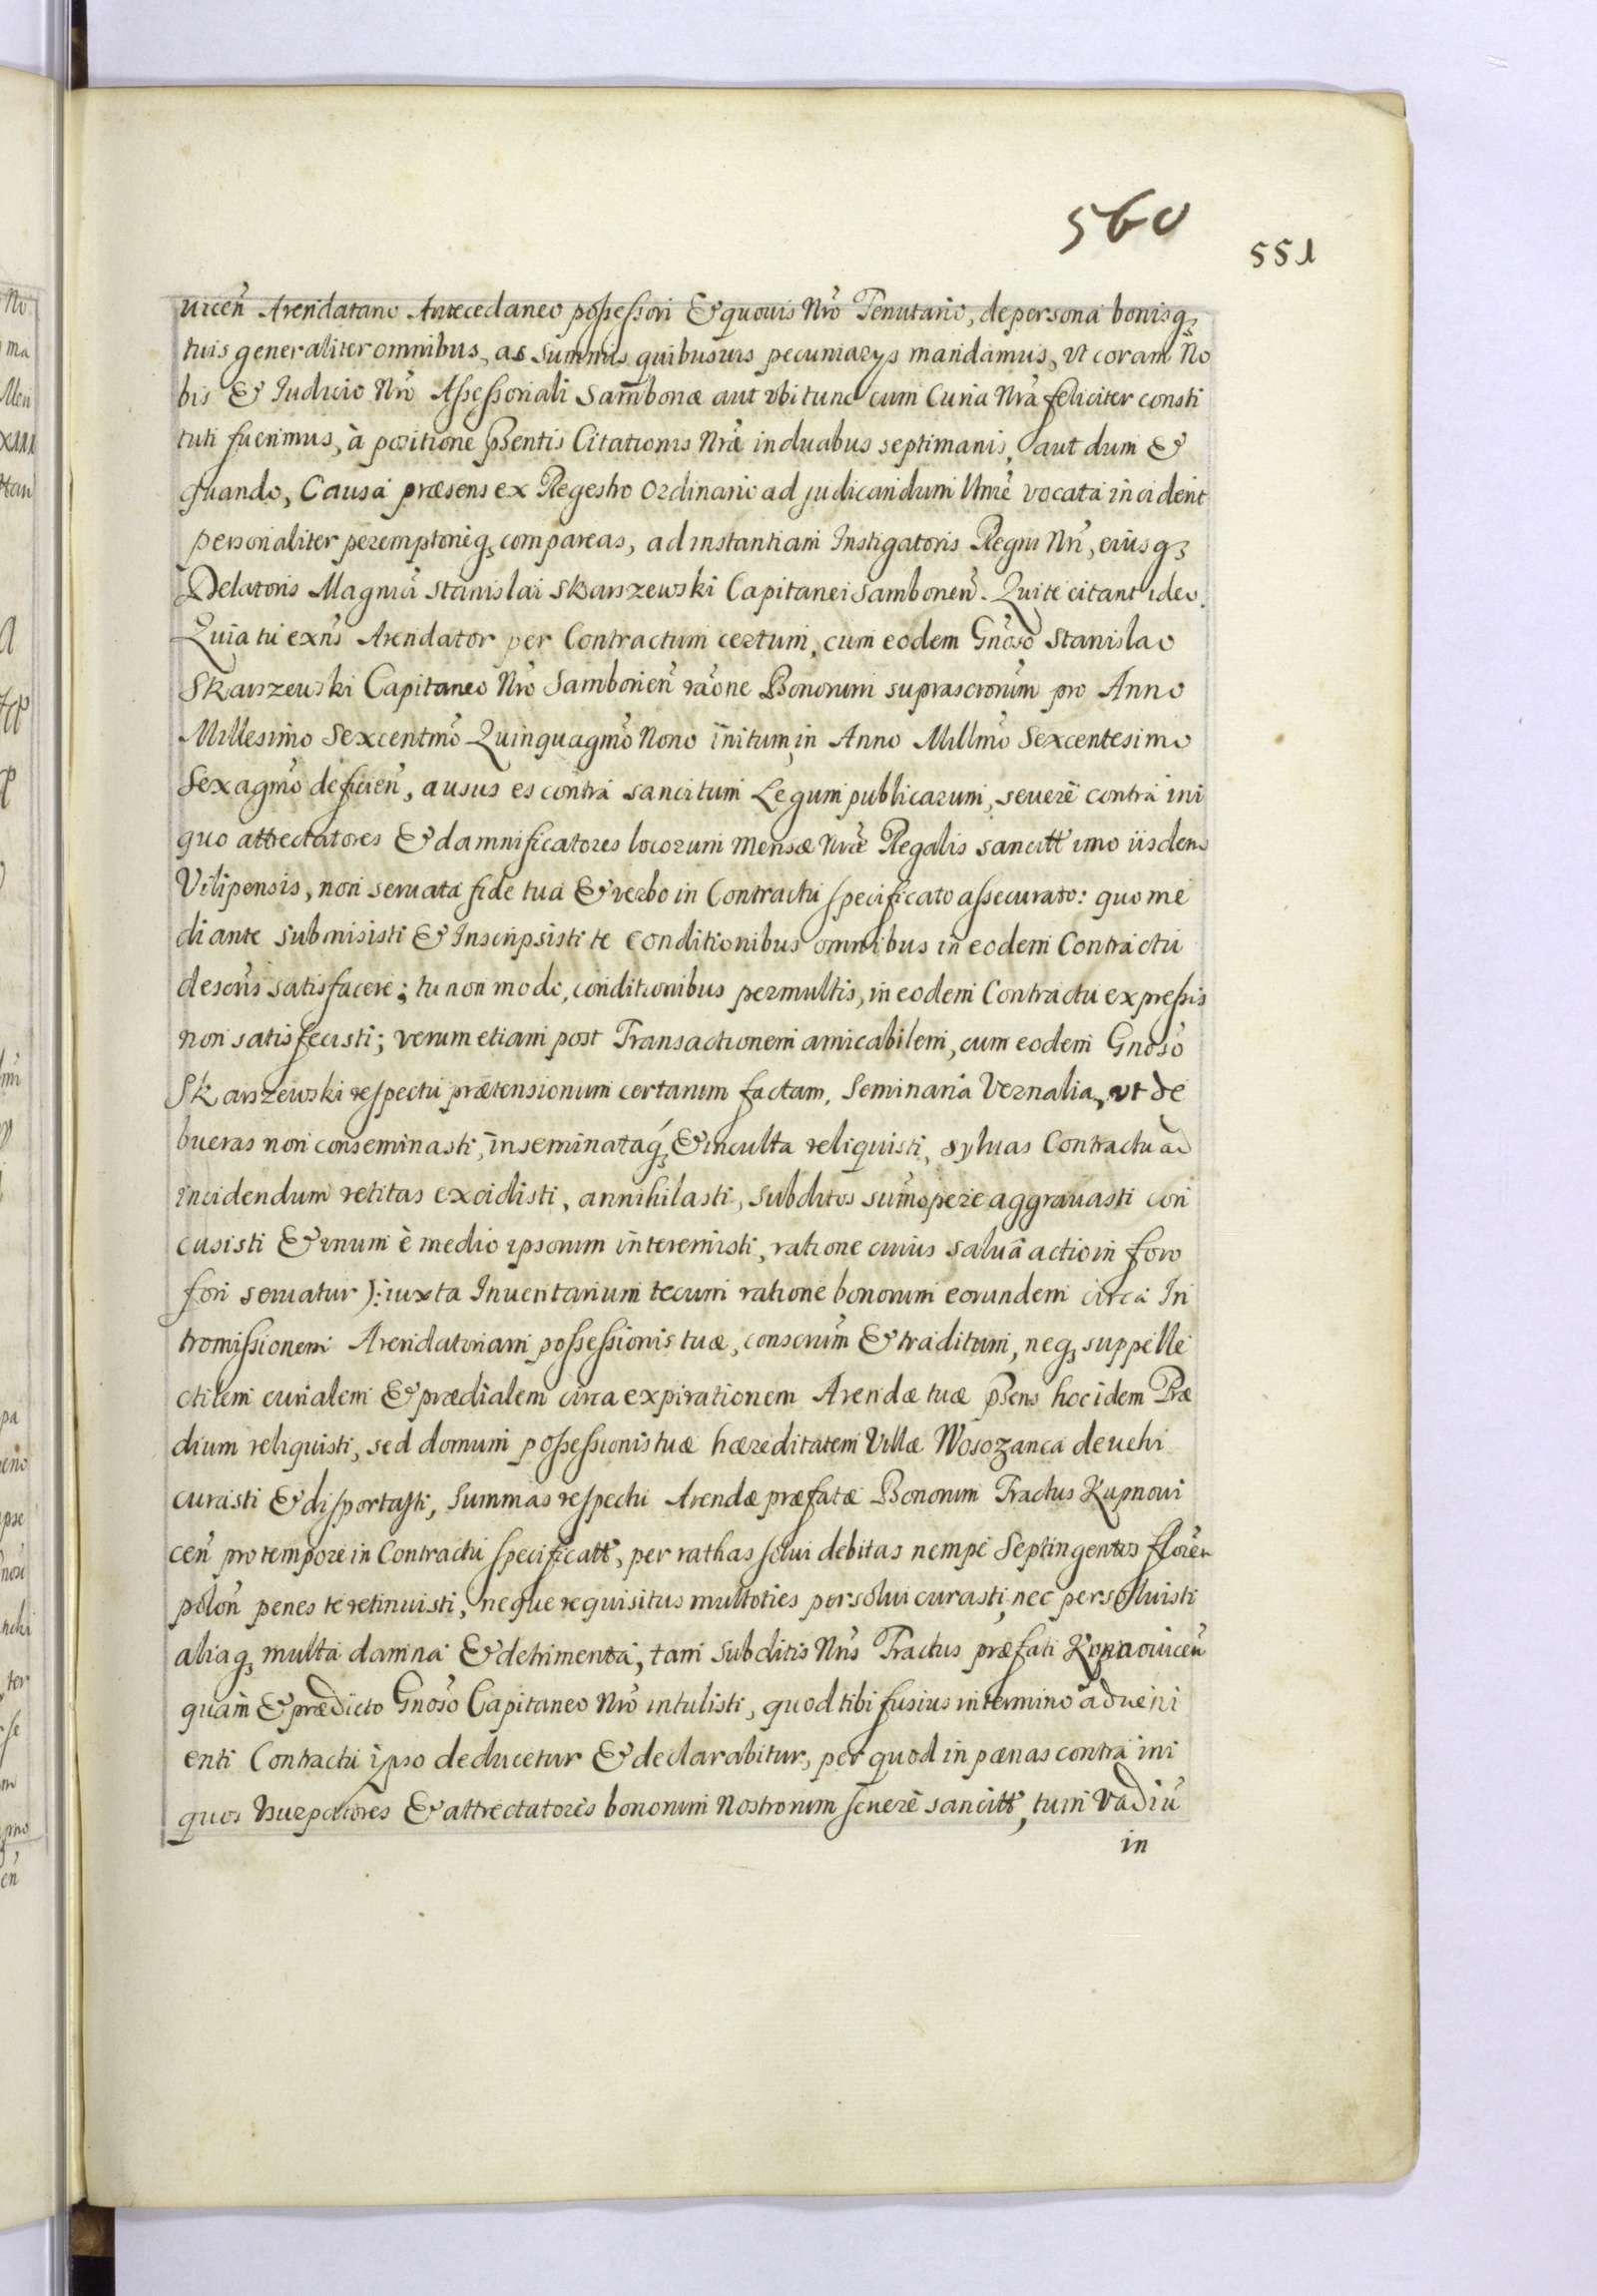 560
551
uicen̄ Arendatario Antecedaneo possessori & quouis Nrō Tenutario, de persona bonisq₃
tuis generaliter omnibus, ac summis quibusuis pecuniarys mandamus, vt coram No
bis & Iudicio Nrō Assessoriali Sam̄boriæ aut vbi tunc cum Curia Nrā feliciter consti
tuti fuerimus, à positione p̄sentis Citationis Nræ in duabus septimanis, aut dum &
quando, Causa præsens ex Regestro Ordinario ad judicandum vocata inciderit
personaliter peremptorieq₃ compareas, ad instantiam Instigatoris Regni Nrī, eiusq₃
Delatoris Magnci Stanislai Skarszewski Capitanei Samborien̄. Qui te citant ideo.
Quia tu exn̄s Arendator per Contractum certum, cum eodem Gnoso Stanislao
Skarszewski Capitaneo Nrō Samborien̄ raōne Bonorum suprascrorum pro Anno
Millesimo Sexcentmō Quinquagmō Nono initum, in Anno Millmō Sexcentesimo
Sexagmō deficien̄, ausus es contra sancitum Legum publicarum, seuerè contra ini
quo attrectatores & damnificatores locorum Mensæ Nræ Regalis sancitt imo iisdem
Vilipensis, non seruata fide tua & verbo in Contractu specificato assecurato: quo me
diante submisisti & Inscripsisti te conditionibus omnibus in eodem Contractu
descris satisfacere; tu non modo, conditionibus permultis, in eodem Contractu expressis
non satisfecisti; verum etiam post Transactionem amicabilem, cum eodem Gnoso
Skarszewski respectu prætensionum certarum factam, Seminaria Vernalia, vt de
bueras non conseminasti, inseminataq₃ & inculta reliquisti, syluas Contractu ad
incidendum vetitas excidisti, annihilasti, subditos sum̄opere aggrauasti con
cusisti & vnum è medio ipsorum interemisti, ratione cuius salua actio in foro
fori seruatur ): iuxta Inuentarium tecum ratione bonorum eorundem circa In
tromissionem Arendatoriam possessionis tuæ, conscrum & traditum, neq₃ suppelle
ctilem curialem & prædialem circa expirationem Arendæ tuæ p̄sens hoc idem Præ
dium reliquisti, sed domum possessionis tuæ hæreditatem Villæ Wosozanca deuehi
curasti & disportasti, summas respectu Arendæ præfatæ Bonorum Tractus Kupnoui
cen̄ pro tempore in Contractu specificatt, per rathas solui debitas nempe Septingentos floren
polon̄ penes te retinuisti, neque requisitus multoties persolui curasti, nec persoluisti
aliaq₃ multa damna & detrimenta, tam subditis Nrīs Tractus præfati Kupnouicen̄
quam & prædicto Gnoso Capitaneo Nrō intulisti, quod tibi fusius in termino adueni
enti Contractu ipso deducetur & declarabitur, per quod in pænas contra ini
quos vsurpatores & attrectatores bonorum Nostrorum seuerè sancitt, tum Vadiū
in